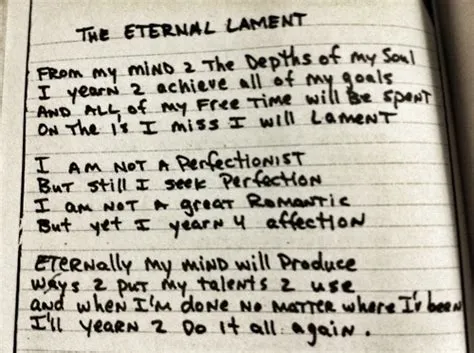 THE ETERNAL LAMENT
FROM my MIND 2 THE DEPTHS of my SOUL
I YEARN 2 achieve all of my goals
AND ALL of my FREE TIME will BE SPENT
ON THE 1's I miss I will LAMENT
I AM NOT A PERFECTIONIST
BUT still I SEEK PERFECTION
I AM NOT A great ROMANTIC
BUT yet I yearn 4 affection
ETERNally my MIND will PRODUCE
ways 2 put my talents 2 use
and when I'm DONE NO MATTER where I'v been
I'll YEARN 2 DO It all again.